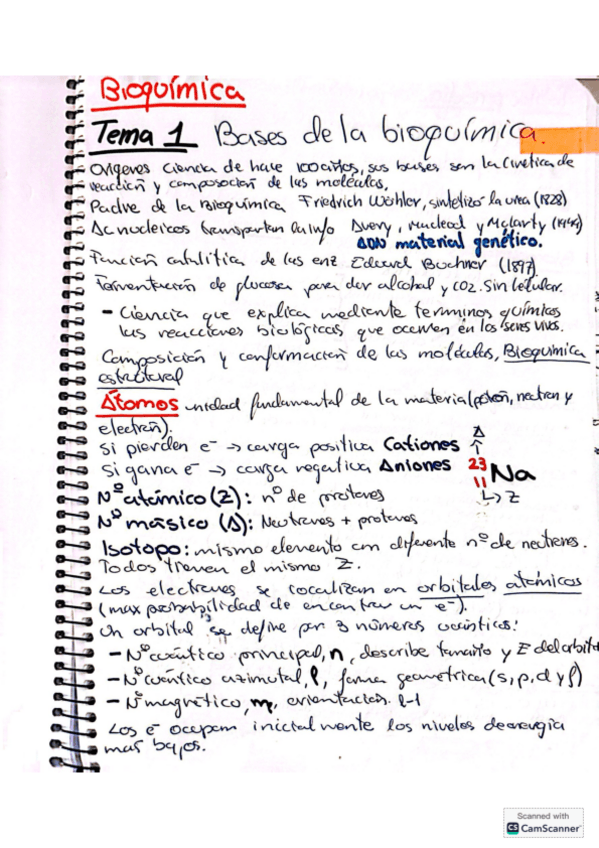 Bioquímica
Tema 1 Bases de la bioquímica.
Orígenes ciencia de hace 100 años, sus bases son la cinética de
reacción y composición de las moléculas,
Padre de la Bioquímica Friedrich Wöhler, sintetizó la urea (1828)
Ac nucleicos transportan la info Avery, Macleod y McCarty (1944)
ADN material genético.
Función catalítica de las enz Eduard Buchner (1897)
Fermentación de glucosa para dar alcohol y CO2. Sin celular.
- Ciencia que explica mediante terminos químicos
las reacciones biológicas, que ocurren en los seres vivos.
Composición y conformación de las moléculas, Bioquimica
estructural
Átomos unidad fundamental de la materia (protón, neutron y
electrón).
si pierden e- → carga positiva Cationes
Si gana e- → carga negativa Aniones
A
↑
23
11
Na
↳ Z
Nº atómico (Z): nº de protones
Nº másico (A): Neutrones + protones
Isotopo: mismo elemento con diferente nº de neutrones.
Todos tienen el mismo Z.
Los electrones se localizan en orbitales atómicos
(max probabilidad de encontrar un e-).
Un orbital se define por 3 números cuánticos:
- Nº cuántico principal, n, describe tamaño y E del orbital
- Nº cuántico azimutal, l, forma geometrica (s, p, d y f)
- Nº magnético, m, orientación. l-1
Los e- ocupan inicialmente los niveles de energía
mas bajos.
Scanned with
CS CamScanner